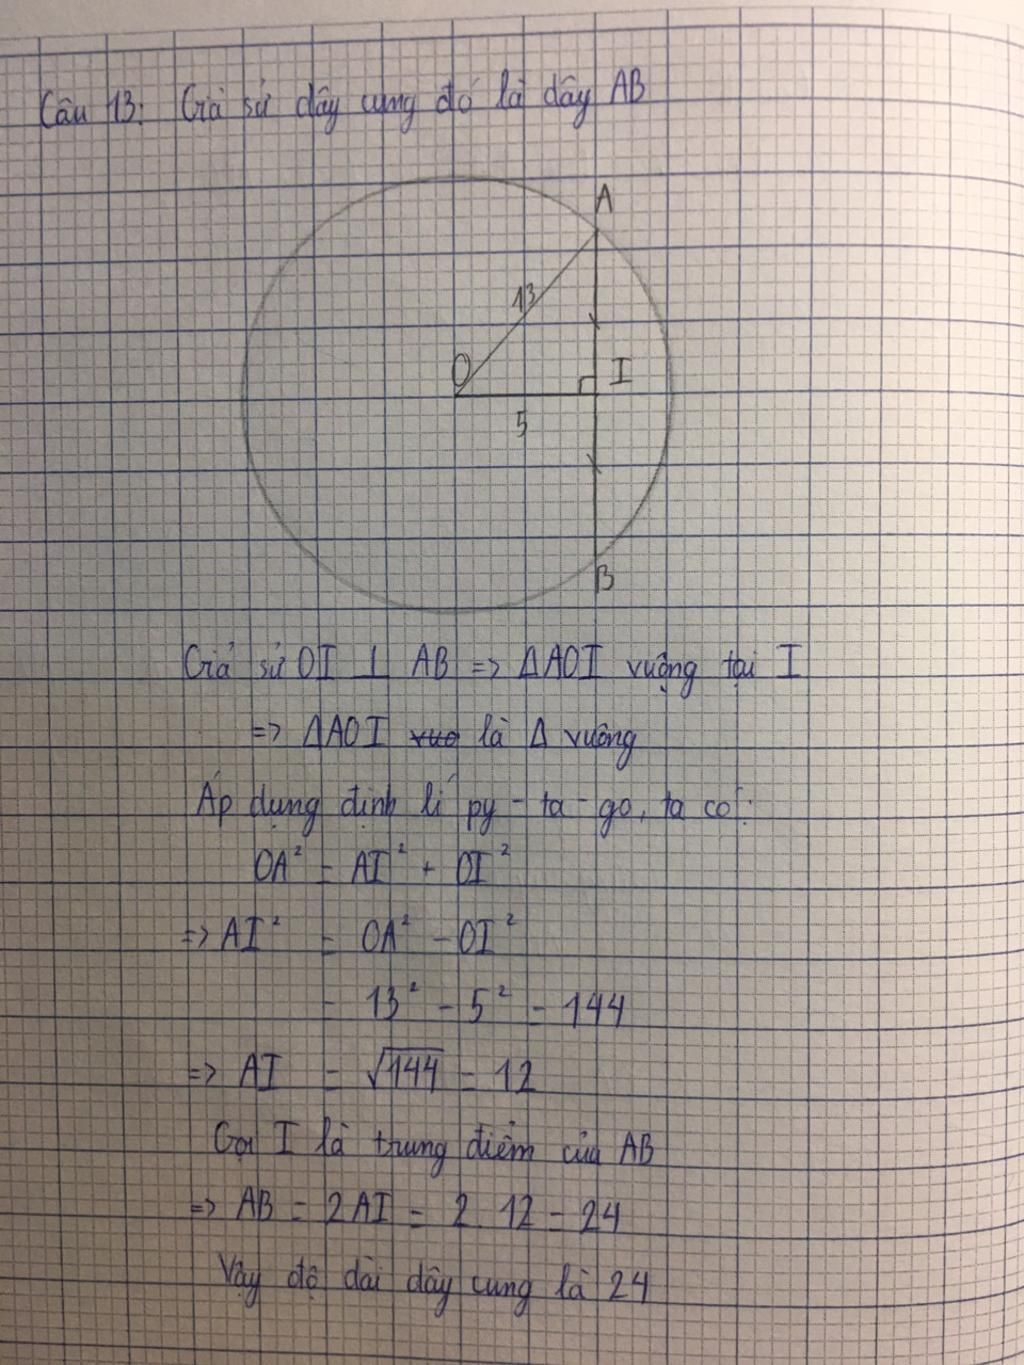 Câu 13: Giả sử dây cung đó là dây AB
A
13
O
I
5
B
Giả sử OI ⊥ AB => ΔAOI vuông tại I
=> ΔAOI vuô là Δ vuông
Áp dụng định lí py - ta - go, ta có:
OA² = AI² + OI²
=> AI² = OA² - OI²
= 13² - 5² = 144
=> AI = √144 = 12
Gọi I là trung điểm của AB
=> AB = 2AI = 2. 12 = 24
Vậy độ dài dây cung là 24